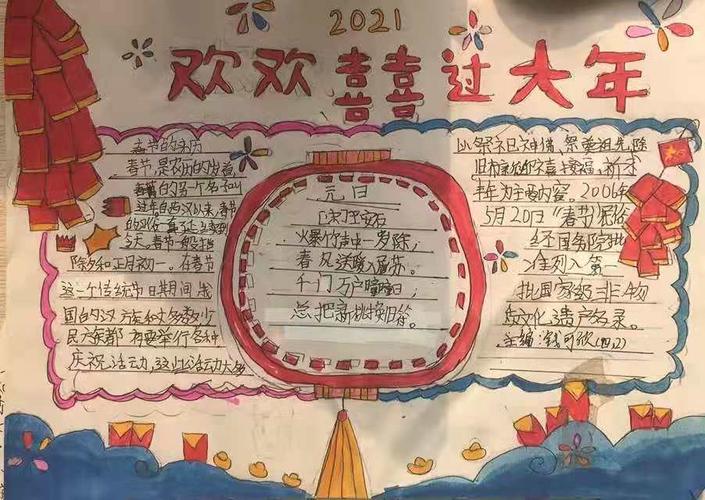 2021
欢欢喜喜过大年
春节的来历
春节,是农历的岁首,
春节的另一个名叫
过年自西汉以来,春节
的习俗一直延续到
今天。春节一般指
除夕和正月初一。在春节
这一个传统节日期间,我
国的汉族和大多数少
民族都要举行各种
庆祝活动,这些活动大多
元日
[宋]王安石
爆竹声中一岁除,
春风送暖入屠苏。
千门万户曈曈日,
总把新桃换旧符。
以祭祀神佛、祭奠祖先、除
旧布新、迎禧接福、祈求
丰年为主要内容。2006年
5月20日“春节”民俗
经国务院批
准列入第一
批国家级非物
质文化遗产名录。
主编:钱可欣(四2)